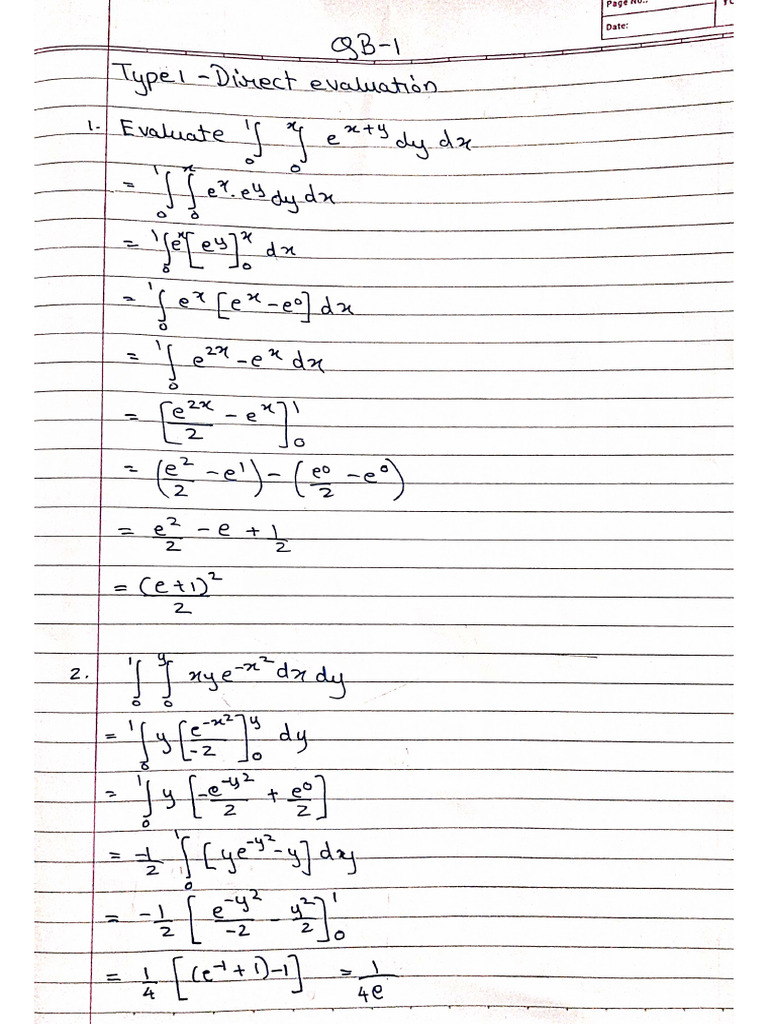 Page No.:
Date:
QB-1
Type 1 - Direct evaluation
1. Evaluate ∫₀¹ ∫₀ˣ e^(x+y) dy dx
= ∫₀¹ ∫₀ˣ eˣ · e^y dy dx
= ∫₀¹ eˣ [e^y]₀ˣ dx
= ∫₀¹ eˣ [eˣ - e⁰] dx
= ∫₀¹ e^(2x) - eˣ dx
= [e^(2x)/2 - eˣ]₀¹
= (e²/2 - e¹) - (e⁰/2 - e⁰)
= e²/2 - e + 1/2
= (e+1)²/2
2. ∫₀¹ ∫₀^y xye^(-x²) dx dy
= ∫₀¹ y [e^(-x²)/-2]₀^y dy
= ∫₀¹ y [-e^(-y²)/2 + e⁰/2]
= -1/2 ∫₀¹ [ye^(-y²) - y] dy
= -1/2 [e^(-y²)/-2 - y²/2]₀¹
= 1/4 [(e⁻¹ + 1) - 1] = 1/4e